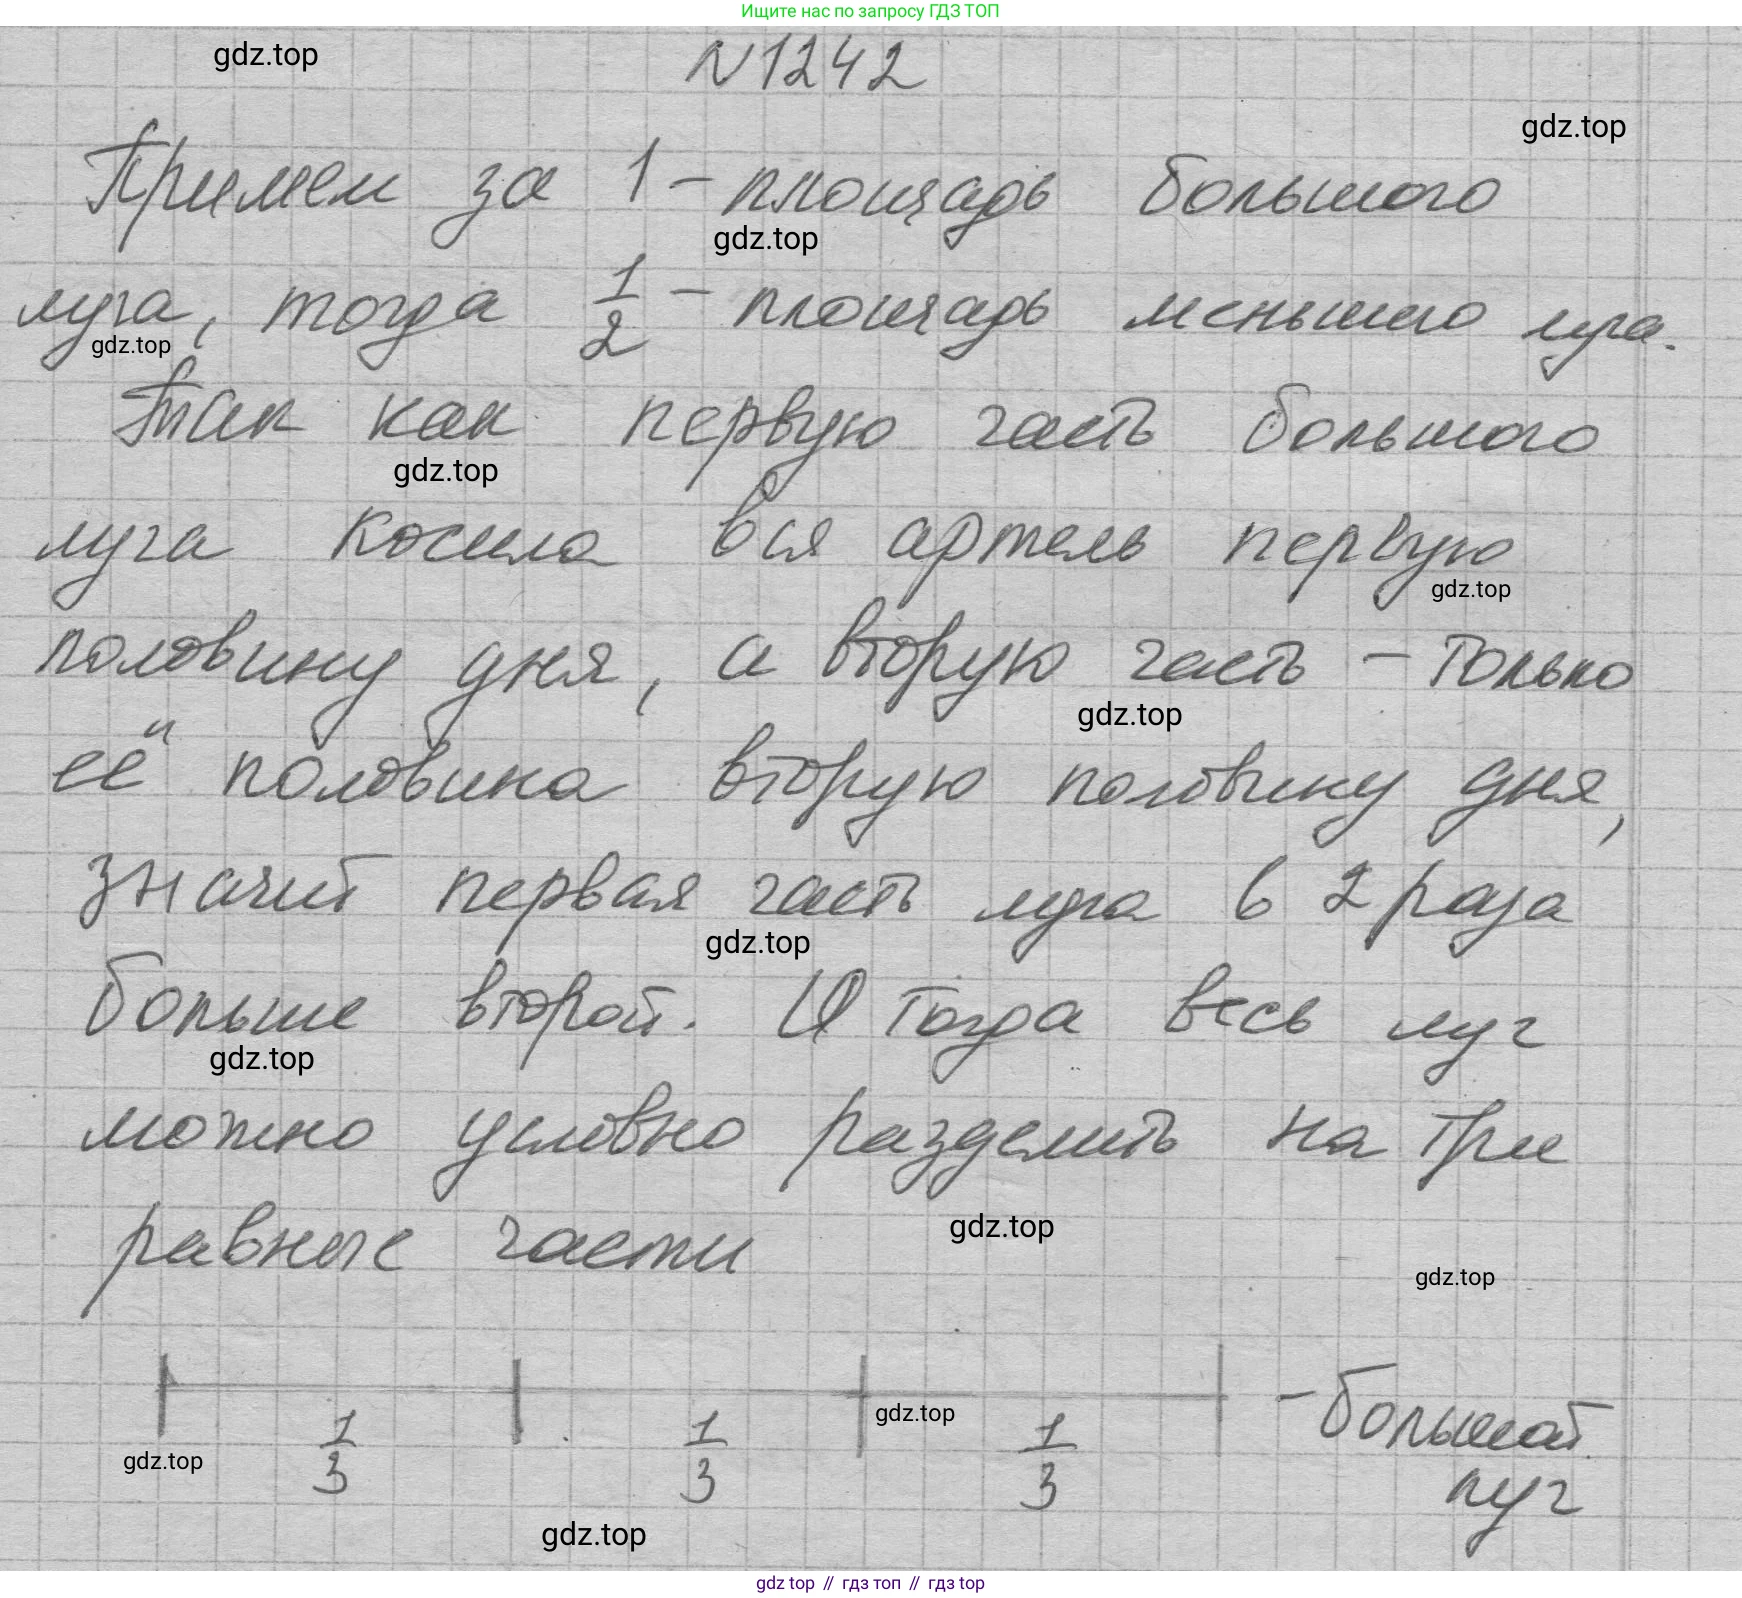 Ищите нас по запросу ГДЗ ТОП
gdz.top
N 1242
gdz.top
Примем за 1 - площадь большого
gdz.top
луга, тогда 1/2 - площадь меньшего луга.
gdz.top
Так как первую часть большого
gdz.top
луга косила вся артель первую
gdz.top
половину дня, а вторую часть - только
gdz.top
её половина вторую половину дня,
значит первая часть луга в 2 раза
gdz.top
больше второй. И тогда весь луг
gdz.top
можно условно разделить на три
равные части
gdz.top
gdz.top
- большой
gdz.top
1/3 1/3 1/3
gdz.top
луг
gdz.top
gdz top // гдз топ // гдз top